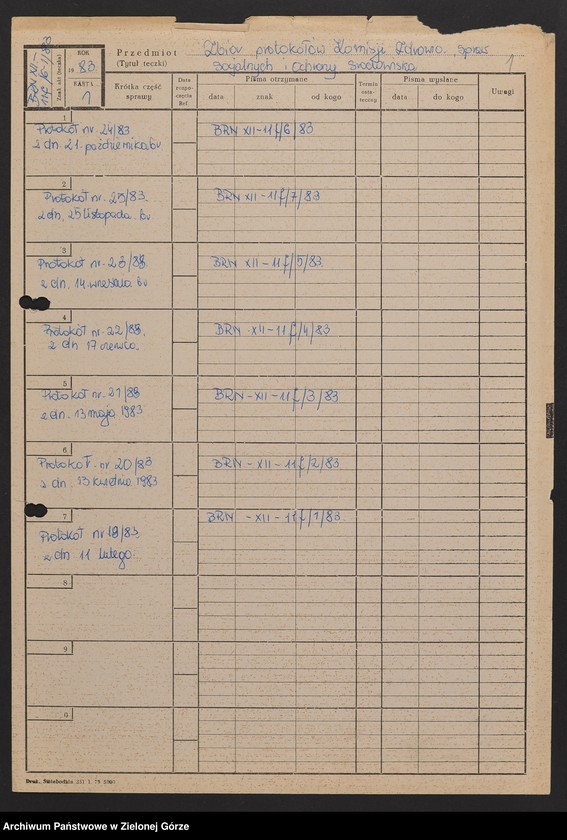 ROK
19 83
KARTA
1
Znak akt (teczki)
BRN XII-
Przedmiot
(Tytuł teczki)
Zbiór protokołów Komisji Zdrowia, spraw
Socjalnych i Ochrony Środowiska
1
Krótka część
sprawy
Data
rozpo-
częcia
Ref.
Pisma otrzymane
data
znak
od kogo
Termin
osta-
teczny
Pisma wysłane
data
do kogo
Uwagi
1
Protokół nr 24/83
z dn 21. października bv
BRN XII-11f/6/83
2
Protokół nr. 25/83.
z dn, 25 listopada. bv
BRN XII-11f/7/83
3
Protokół nr. 23/83
z dn. 14 września bv
BRN XII-11f/5/83.
4
Protokół nr. 22/83.
z dn 17 czerwca.
BRN XII-11f/4/83
5
Protokół nr. 21/83
z dn. 13 maja 1983
BRN-XII-11f/3/83
6
Protokół nr 20/83
z dn. 13 kwietnia 1983
BRN-XII-11f/2/83.
7
Protokół nr 18/83.
z dn 11 lutego.
BRN -XII-11f/1/83.
8
9
0
Druk. Świebodzin III 1. 79 5000
Archiwum Państwowe w Zielonej Górze